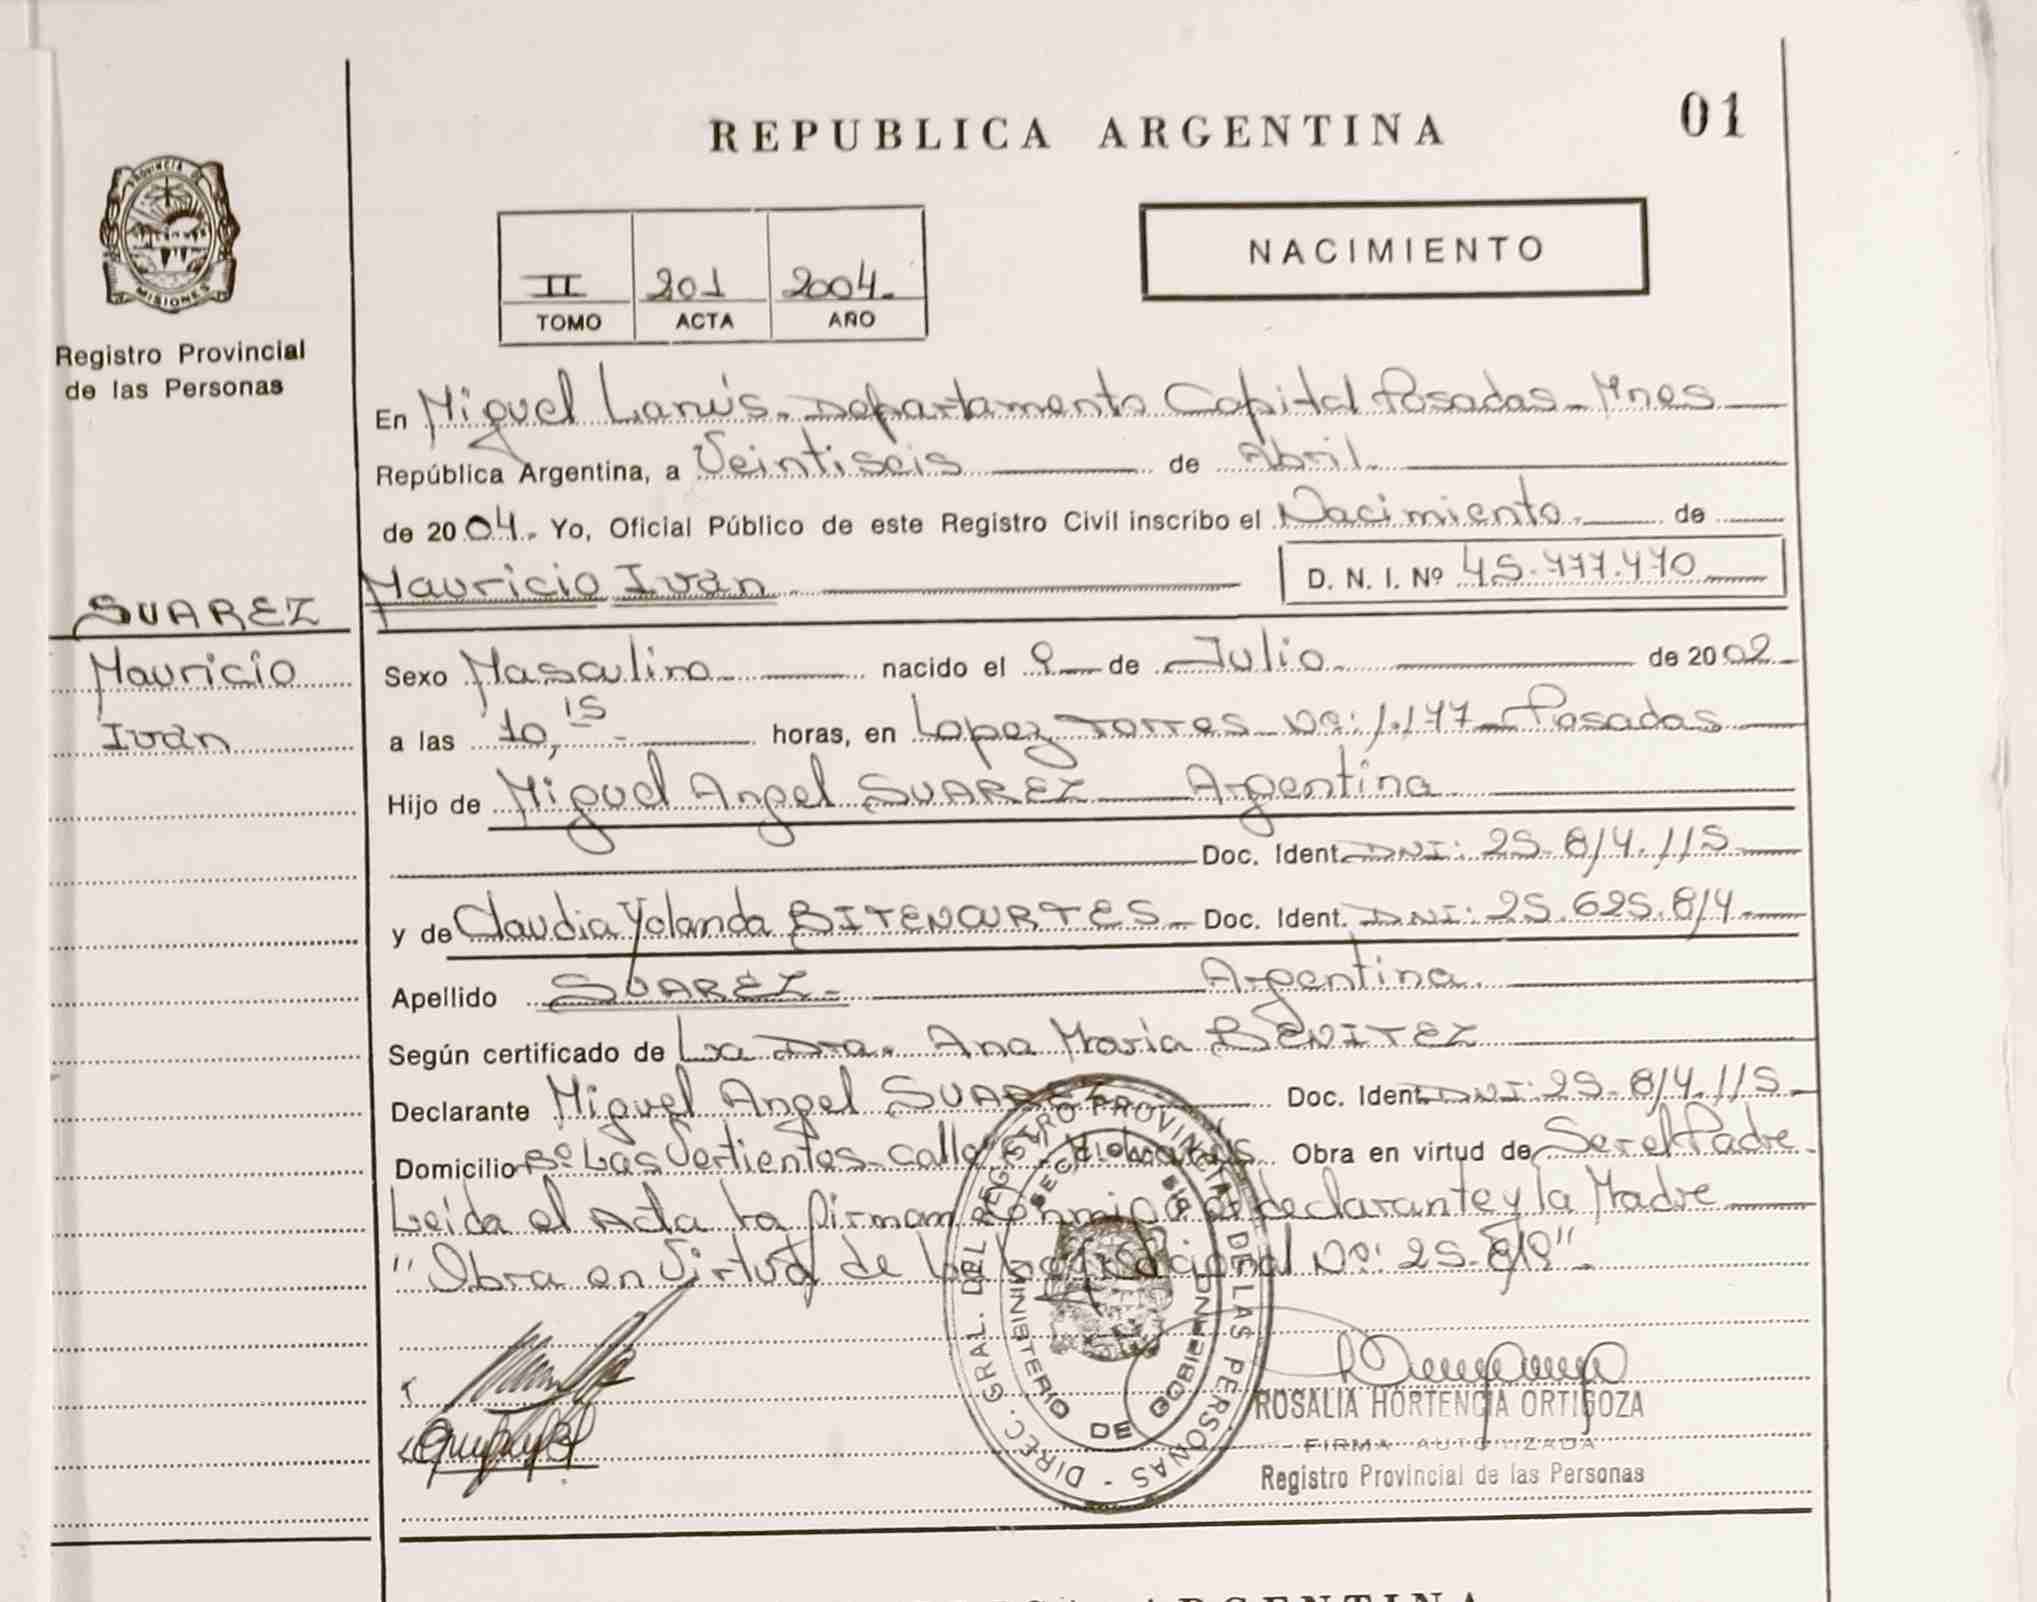 REPUBLICA ARGENTINA
01
PROVINCIA DE
MISIONES
Registro Provincial
de las Personas
II 201 2004.
TOMO ACTA AÑO
NACIMIENTO
En Miguel Lanús. Departamento Capital Posadas - Mnes
República Argentina, a Veintiseis de Abril.
de 2004. Yo, Oficial Público de este Registro Civil inscribo el Nacimiento. de
Mauricio Iván
D. N. I. Nº 45.477.470
SUAREZ
Mauricio
Iván
Sexo Masculino nacido el 9 de Julio de 2002
a las 10,15 horas, en Lopez Torres Nº: 1.177 - Posadas
Hijo de Miguel Angel SUAREZ Argentina
Doc. Ident. DNI: 25.814.115
y de Claudia Yolanda BITENCURTES - Doc. Ident. DNI: 25.625.814
Apellido SUAREZ. Argentina.
Según certificado de La Dra. Ana María BENITEZ
Declarante Miguel Angel SUAREZ Doc. Ident. DNI: 25.814.115
Domicilio Bº Las Vertientes calle Obra en virtud de Ser el Padre.
Leída el Acta la firman conmigo el declarante y la Madre
"Obra en Virtud de la Ley Nacional Nº: 25.819".
DIREC. GRAL. DEL REGISTRO PROVINCIAL DE LAS PERSONAS -
MINISTERIO DE GOBIERNO
ROSALIA HORTENCIA ORTIGOZA
FIRMA AUTORIZADA
Registro Provincial de las Personas
ARGENTINA